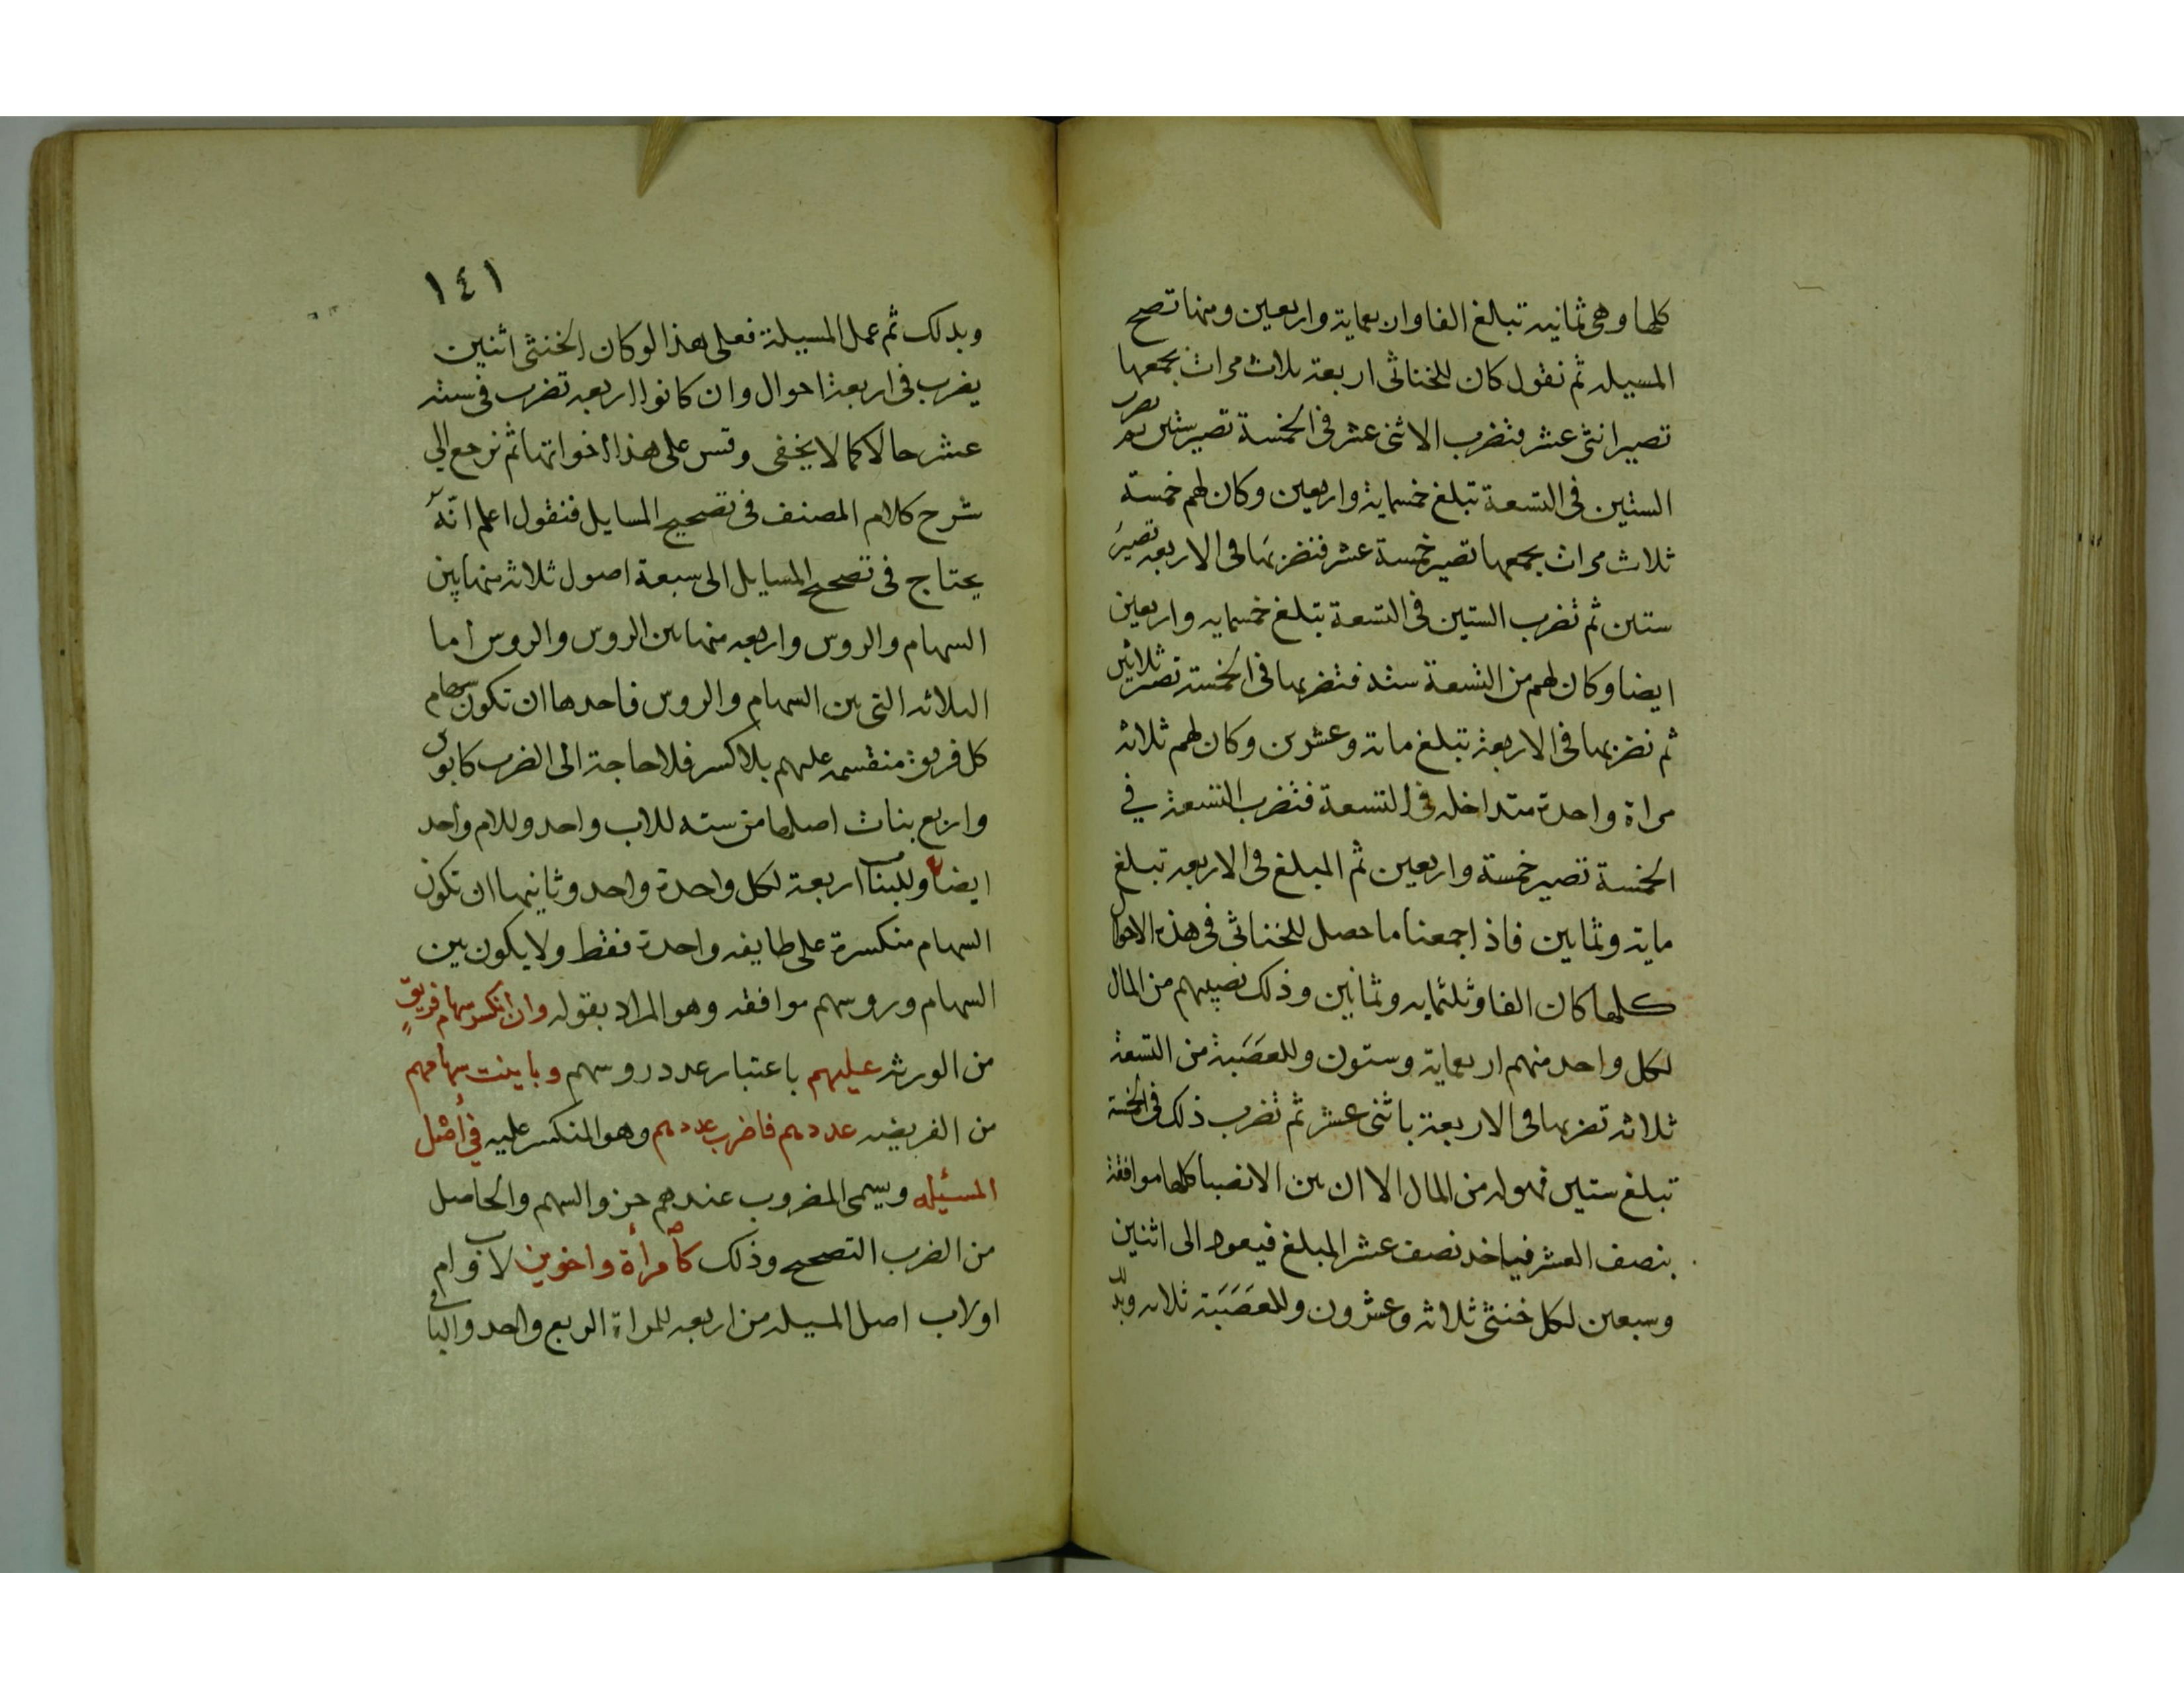 كلها وهى ثمانيه تبلغ الفا واربعماية واربعين ومنها تصح
المسيله ثم نقول كان للخناثى اربعة ثلاث مرات بجمعها
تصير اثنى عشر فتضرب الاثنى عشر فى الخمسة تصير ستين ثم نضرب
الستين فى التسعة تبلغ خمسماية واربعين وكان لهم خمسة
ثلاث مرات بجمعها تصير خمسة عشر فنضربها فى الاربعه تصير
ستين ثم نضرب الستين فى التسعة تبلغ خمسمايه واربعين
ايضا وكان لهم من التسعة ستة فنضربها فى الخمسة تصير ثلاثين
ثم نضربها فى الاربعة تبلغ ماية وعشرين وكان لهم ثلاثه
مراة واحدة متداخله فى التسعة فنضرب التسعة في
الخمسة تصير خمسة واربعين ثم المبلغ فى الاربعه تبلغ
ماية وثمانين فاذا جمعنا ما حصل للخناثى فى هذه الاحوال
كلها كان الفا وثلثمايه وثمانين وذلك نصيبهم من المال
لكل واحد منهم اربعماية وستون وللعَصَبة من التسعة
ثلاثه تضربها فى الاربعة باثنى عشر ثم نضرب ذلك فى الخمسة
تبلغ ستين فهو له من المال الا ان بين الانصبا كلها موافقة
بنصف العشر فياخد نصف عشر المبلغ فيعود الى اثنين
وسبعين لكل خنثى ثلاثه وعشرون وللعَصَبَة ثلاثه وبذلك
١٤١
وبدلك ثم عمل المسيلة فعلى هذا لو كان الخنثى اثنين
يضرب فى اربعة احوال وان كانوا اربعه تضرب فى ستة
عشر حالا كما لا يخفى وقس على هذا اخواتها ثم نرجع الي
شرح كلام المصنف فى تصحيح المسايل فنقول اعلم انّه
يحتاج فى تصحيح المسايل الى سبعة اصول ثلاثه منها بين
السهام والروس واربعه منها بين الروس والروس اما
الثلاثه التى بين السهام والروس فاحدها ان تكون سهام
كل فريق منقسمه عليهم بلا كسر فلا حاجة الى الضرب كابوين
واربع بنات اصلها من سته للاب واحد وللام واحد
ايضا وللبنات اربعة لكل واحدة واحد وثانيها ان تكون
السهام منكسرة على طايفه واحدة فقط ولا يكون بين
السهام وروسهم موافقه وهو المراد بقوله وان انكسر سهام فريقٍ
من الورثه عليهم باعتبار عدد روسهم وباينت سهامهم
من الفريضه عددهم فاضرب عددهم وهو المنكسر عليه في أصل
المسئيله ويسمى المضروب عندهم جزو السهم والحاصل
من الضرب التصحيح وذلك كأمرأة واخوين لاب وام
او لاب اصل المسيله من اربعه للمراة الربع واحد والباقى